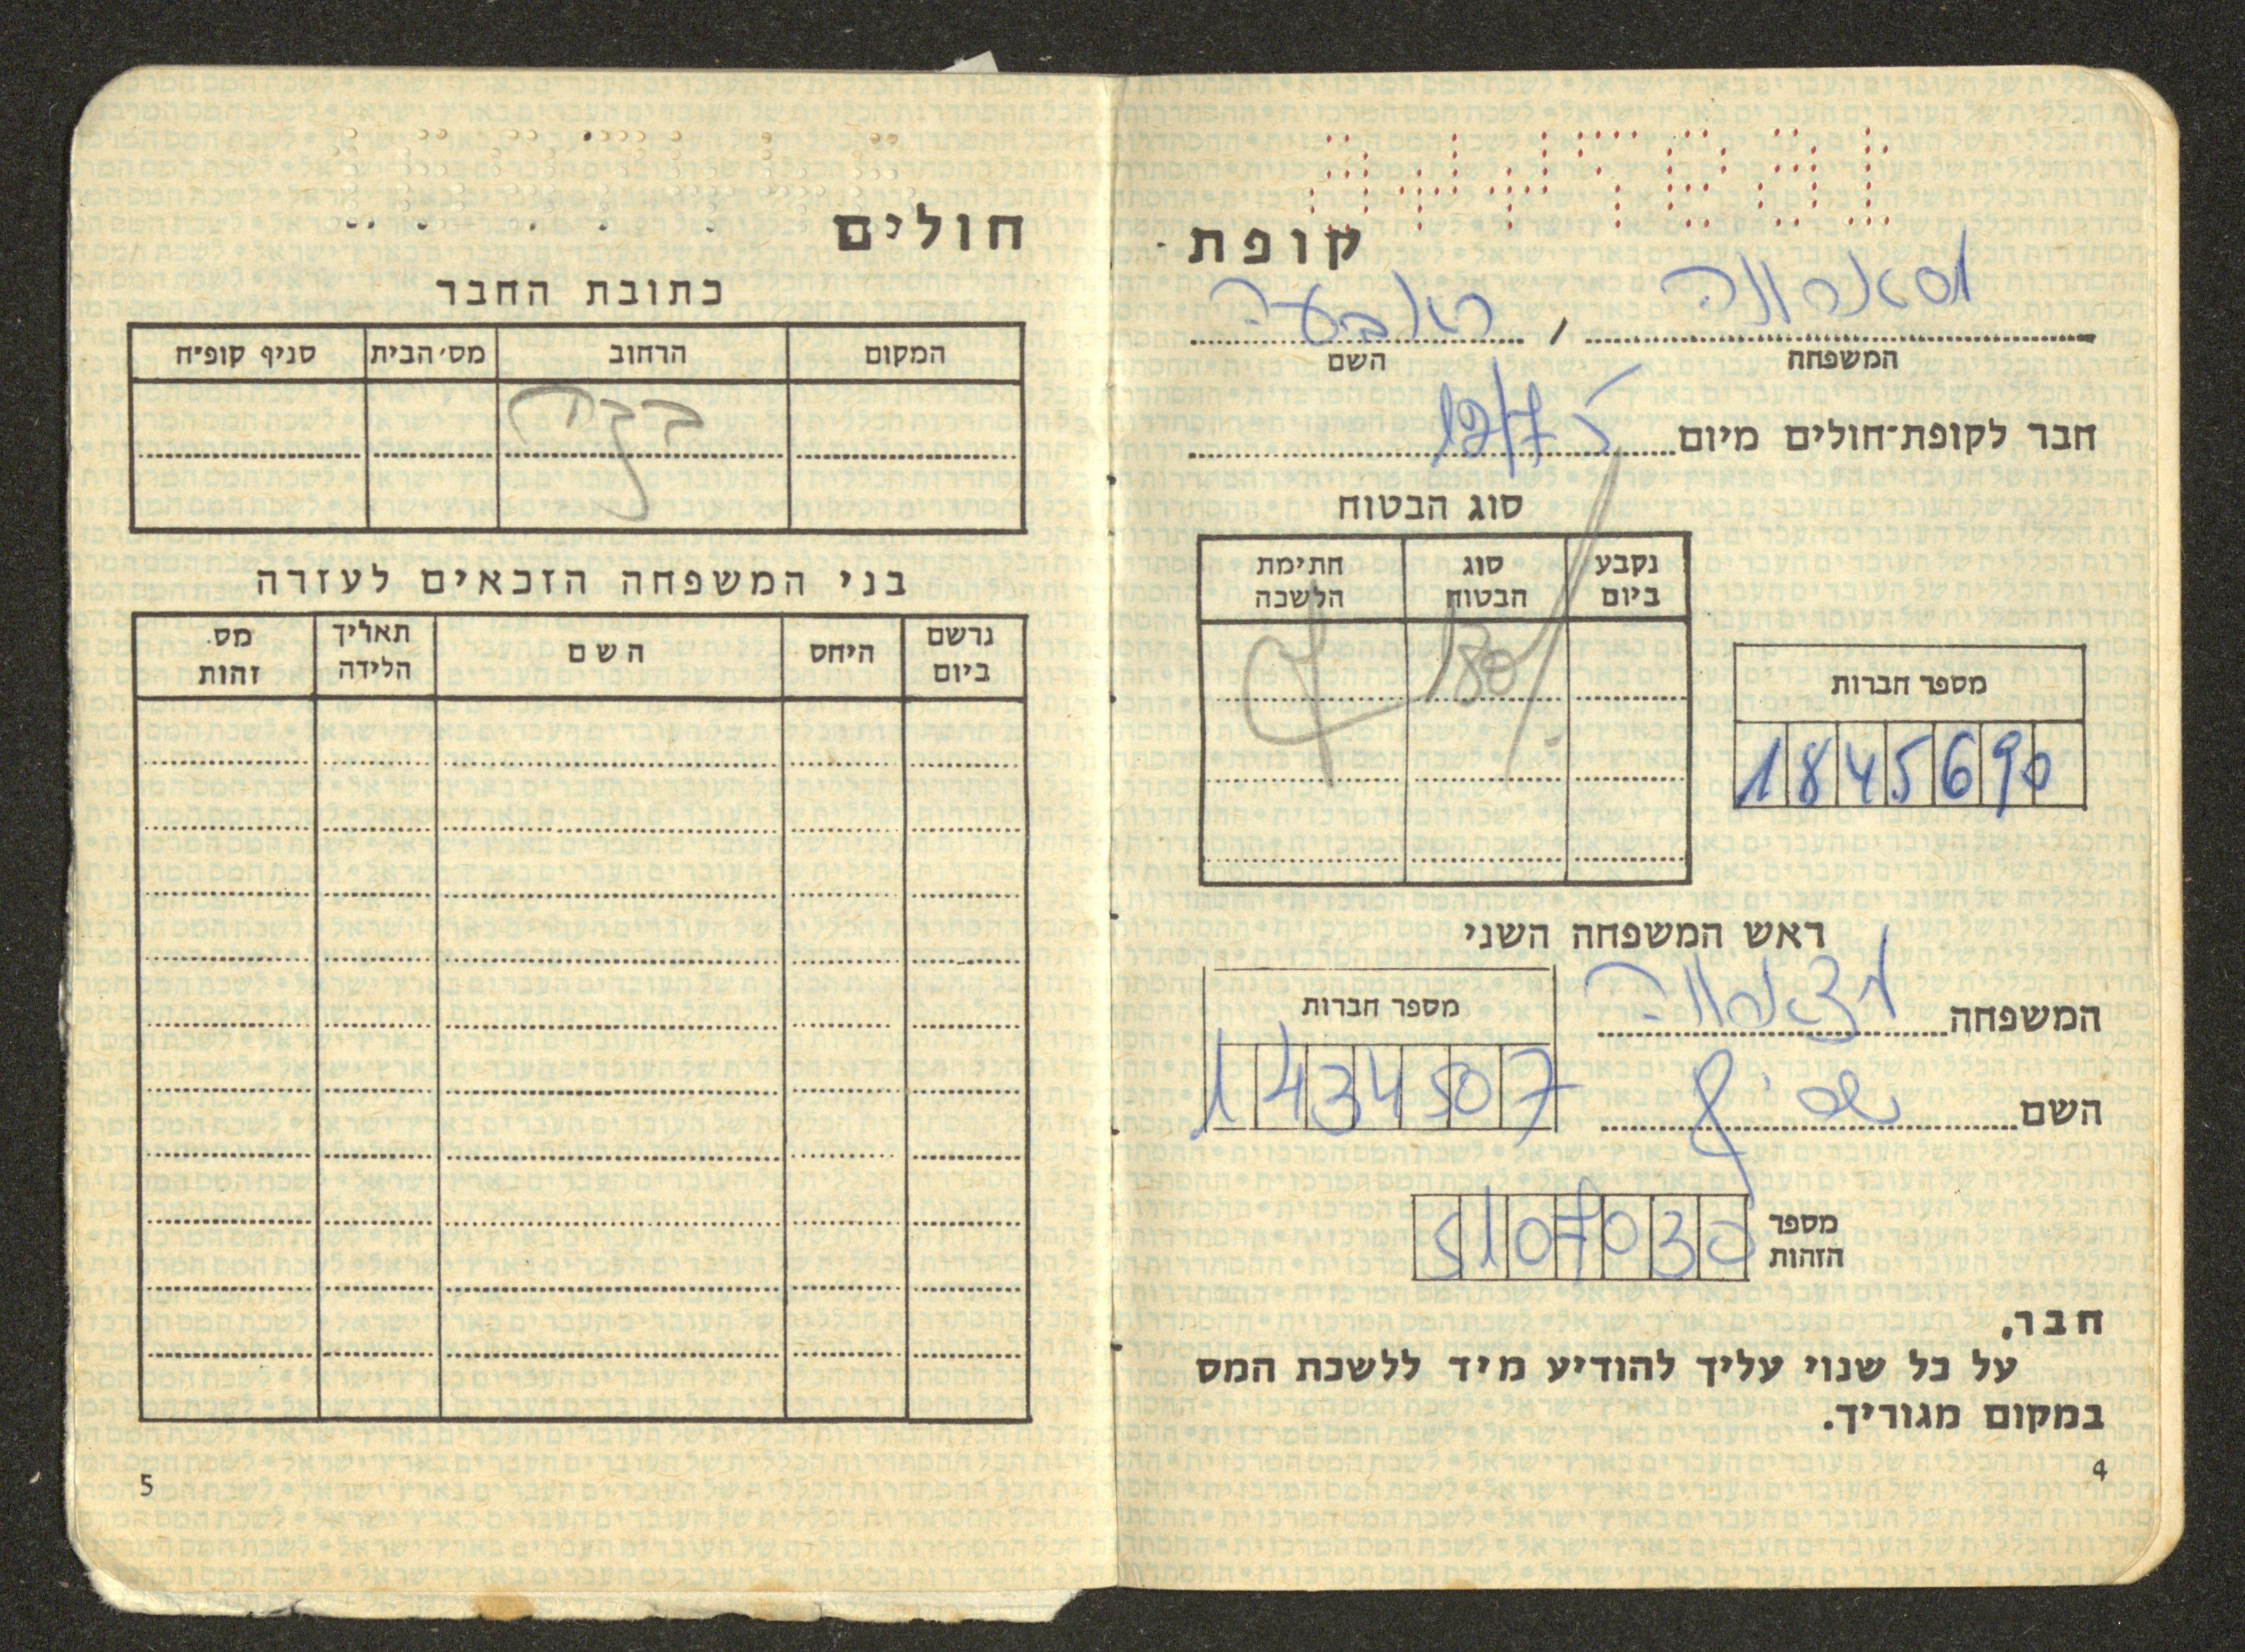 קופת
המשפחה / השם
חבר לקופת־חולים מיום
סוג הבטוח
נקבע ביום
סוג הבטוח
חתימת הלשכה
180
מספר חברות
1845690
ראש המשפחה השני
המשפחה
השם
מספר חברות
1434507
מספר הזהות
חבר.
על כל שנוי עליך להודיע מיד ללשכת המס
במקום מגוריך.
4
חולים
כתובת החבר
המקום
הרחוב
מס׳ הבית
סניף קופ״ח
בני המשפחה הזכאים לעזרה
נרשם ביום
היחס
השם
תאריך הלידה
מס. זהות
5